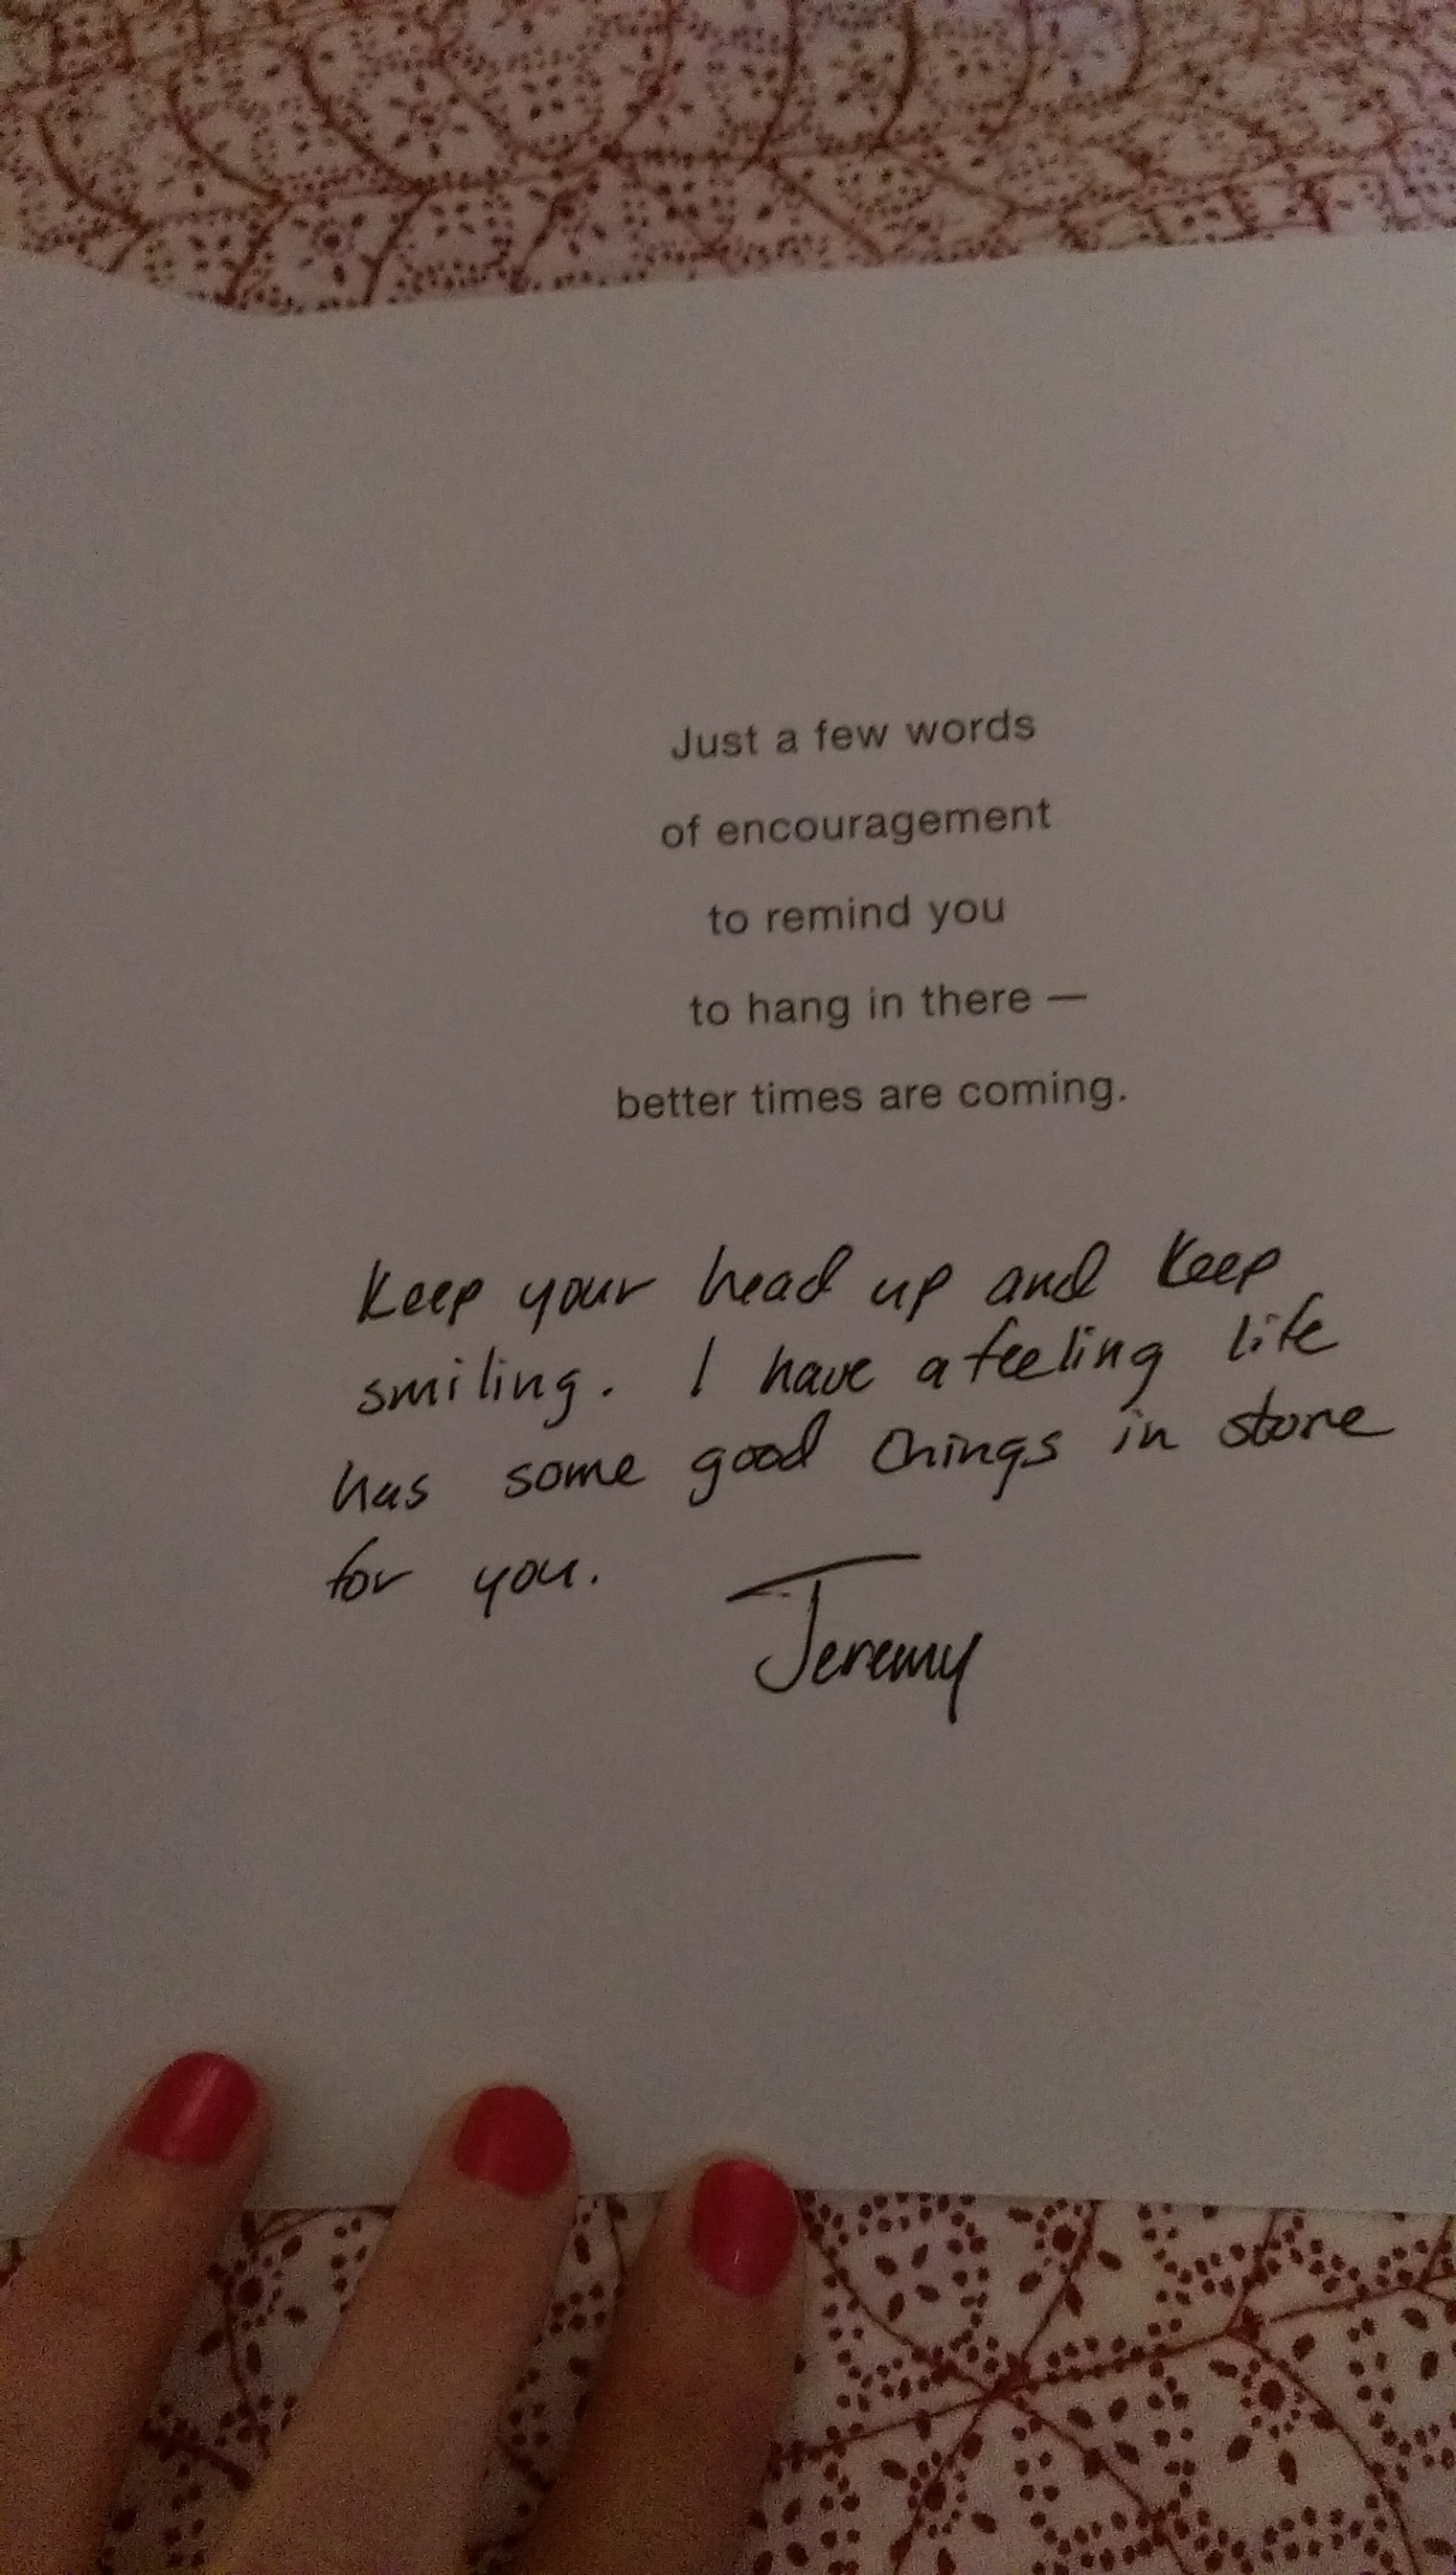 Just a few words
of encouragement
to remind you
to hang in there —
better times are coming.
Keep your head up and keep
smiling. I have a feeling life
has some good things in store
for you.
Jeremy